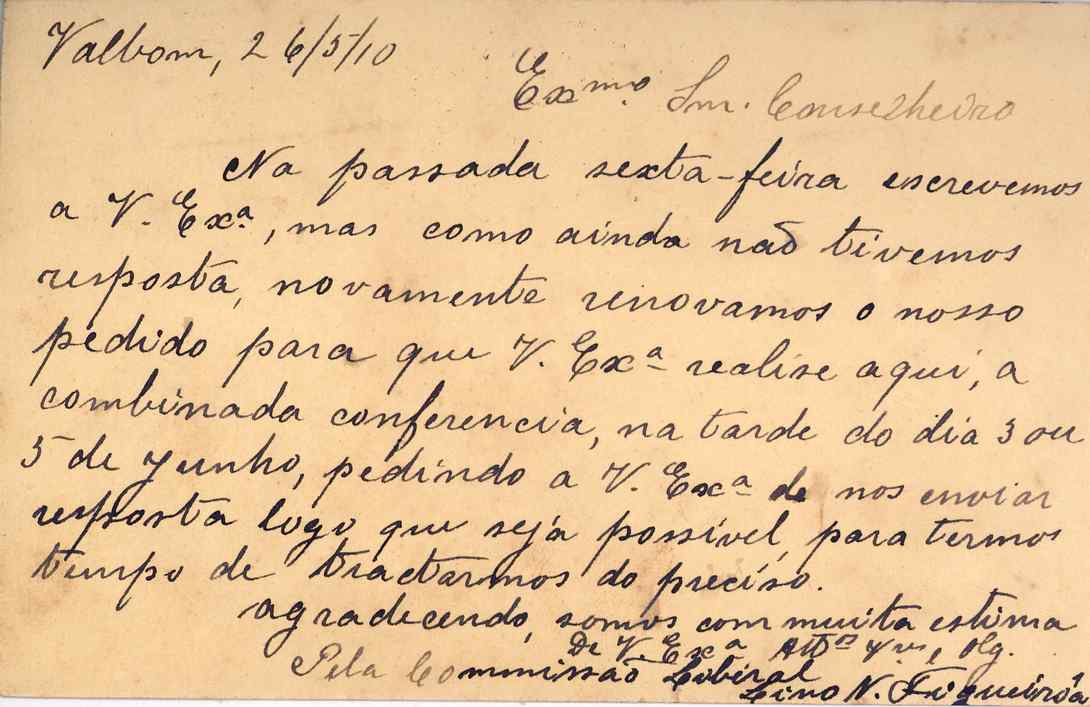 Valbom, 26/5/10
Exmo. Snr. Conselheiro
Na passada sexta-feira escrevemos
a V. Exa., mas como ainda não tivemos
resposta, novamente renovamos o nosso
pedido para que V. Exa realise aqui, a
combinada conferencia, na tarde do dia 3 ou
5 de junho, pedindo a V. Exa de nos enviar
resposta logo que seja possivel, para termos
tempo de tractarmos do preciso.
agradecendo, somos com muita estima
De V. Exa Attos
Pela Commissão Liberal
Lino N. Figueirôa